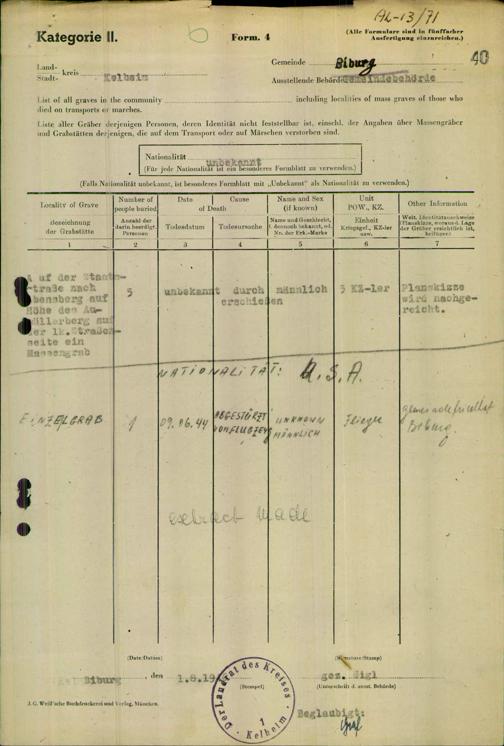 AL-13/71
Kategorie II.
Form. 4
(Alle Formulare sind in fünffacher
Ausfertigung einzureichen.)
40
Gemeinde Biburg
Land-
Stadt- kreis Kelheim
Ausstellende Behörde Gemeindebehörde
List of all graves in the community including localities of mass graves of those who
died on transports or marches.
Liste aller Gräber derjenigen Personen, deren Identität nicht feststellbar ist, einschl. der Angaben über Massengräber
und Grabstätten derjenigen, die auf dem Transport oder auf Märschen verstorben sind.
Nationalität unbekannt
(Für jede Nationalität ist ein besonderes Formblatt zu verwenden.)
(Falls Nationalität unbekannt, ist besonderes Formblatt mit „Unbekannt" als Nationalität zu verwenden.)
Locality of Grave
Bezeichnung
der Grabstätte
1
Number of
people buried
Anzahl der
darin beerdigt.
Personen
2
Date
of Death
Todesdatum
3
Cause
Todesursache
4
Name and Sex
(if known)
Name und Geschlecht,
f. dennoch bekannt, od.
Nr. der Erk.-Marke
5
Unit
POW., KZ.
Einheit
Kriegsgef., KZ-ler
usw.
6
Other Information
Weit. Identitätsausweise
(Planskizze, woraus d. Lage
der Gräber ersichtlich ist,
beifügen)
7
A auf der Staats-
straße nach
bensberg auf
Höhe des
er lk. Straßen-
seite ein
Massengrab
5
unbekannt durch
erschießen
männlich
5 KZ-ler
Planskizze
wird nachge-
reicht.
NATIONALITÄT: U.S.A.
EINZELGRAB
1
09.06.44
ABGESTÜRZT
VOM FLUGZEUG
UNKNOWN
MÄNNLICH
Flieger
gemeindefriedhof
Biburg.
extract made
(Date/Datum)
(Signature/Stamp)
Biburg, den 1.8.19
(Stempel)
gez. Sigl
(Unterschrift d. ausst. Behörde)
Der Landrat des Kreises
1
Kelheim
J. G. Weiß'sche Buchdruckerei und Verlag, München.
Beglaubigt:
Graf